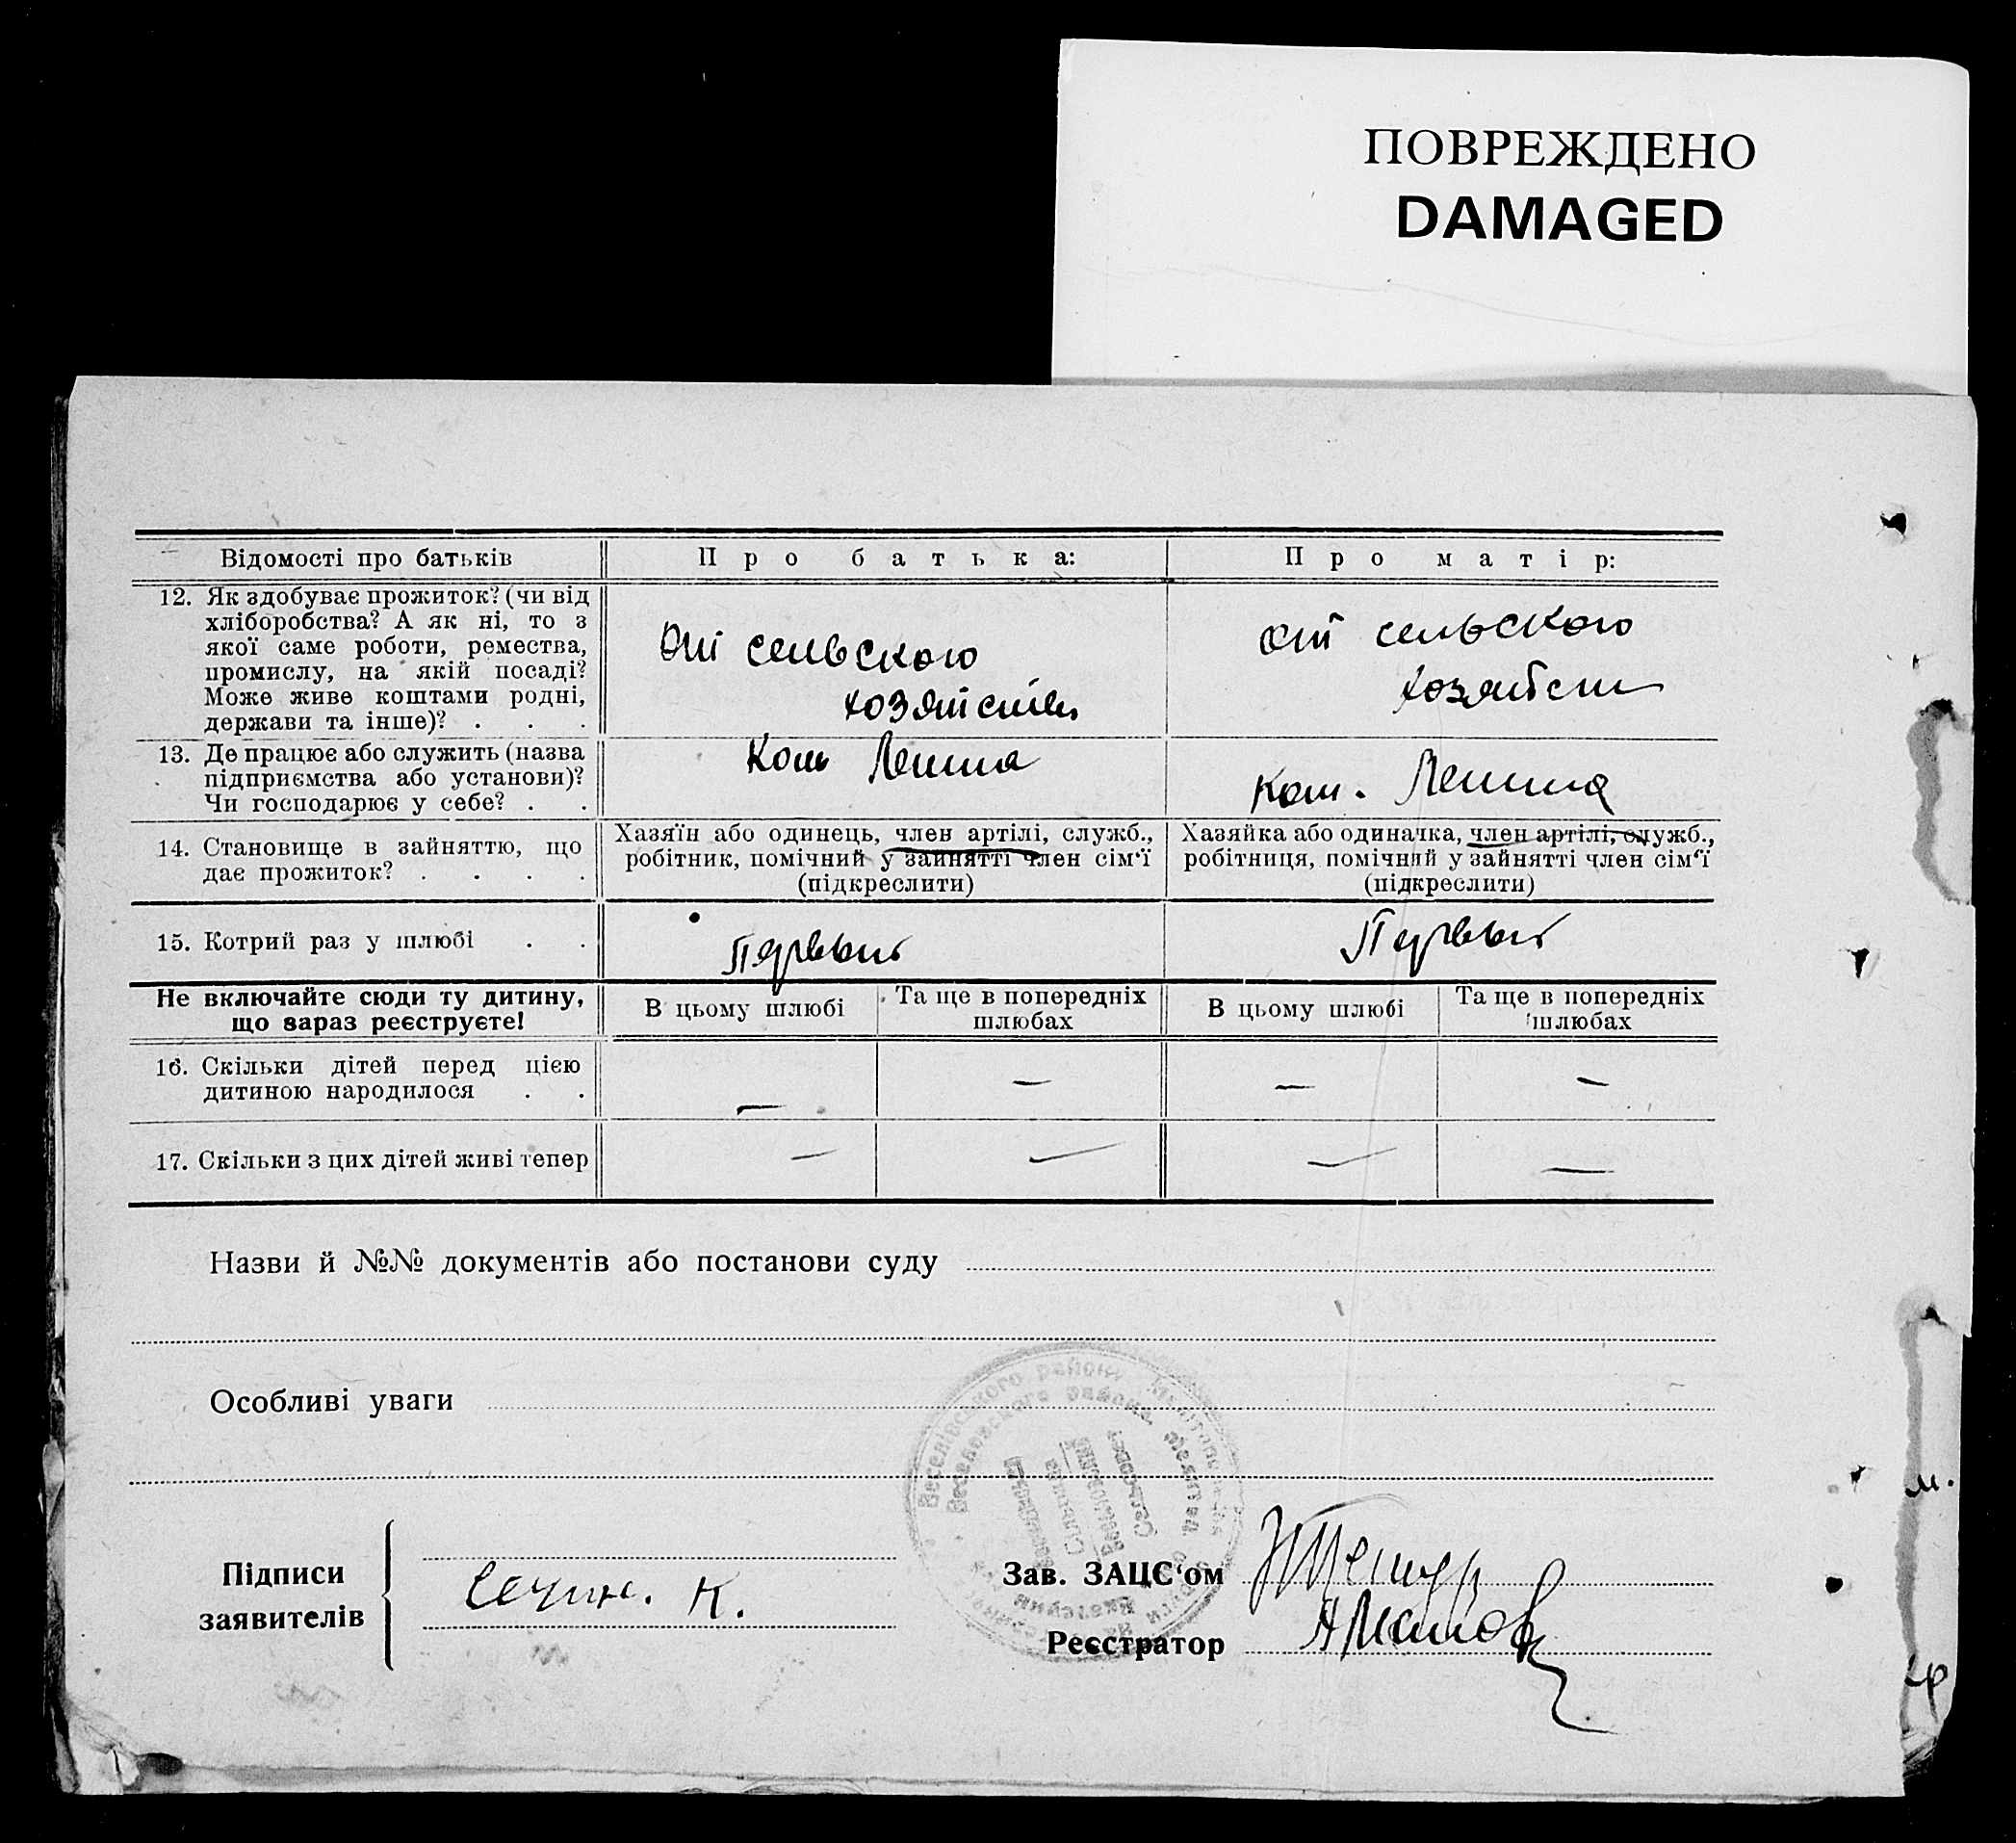 ПОВРЕЖДЕНО
DAMAGED
Відомості про батьків
Про батька:
Про матір:
12. Як здобуває прожиток? (чи від
хліборобства? А як ні, то з
якої саме роботи, ремества,
промислу, на якій посаді?
Може живе коштами родні,
держави та інше)? . . .
От сельского
хозяйства
от сельского
хозяйства
13. Де працює або служить (назва
підприємства або установи)?
Чи господарює у себе? . .
Ленина
Ленина
14. Становище в зайняттю, що
дає прожиток? . . . .
Хазяїн або одинець, член артілі, служб.,
робітник, помічний у зайнятті член сім'ї
(підкреслити)
Хазяйка або одиначка, член артілі, служб.,
робітниця, помічний у зайнятті член сім'ї
(підкреслити)
15. Котрий раз у шлюбі . .
Первый
Первый
Не включайте сюди ту дитину,
що зараз реєструєте!
В цьому шлюбі
Та ще в попередніх
шлюбах
В цьому шлюбі
Та ще в попередніх
шлюбах
16. Скільки дітей перед цією
дитиною народилося . .
— — — —
17. Скільки з цих дітей живі тепер
— — — —
Назви й №№ документів або постанови суду
Особливі уваги
Веселівського району
Веселовского района
Сільрада
Підписи
заявителів
К.
Зав. ЗАЦС'ом
Реєстратор
м.